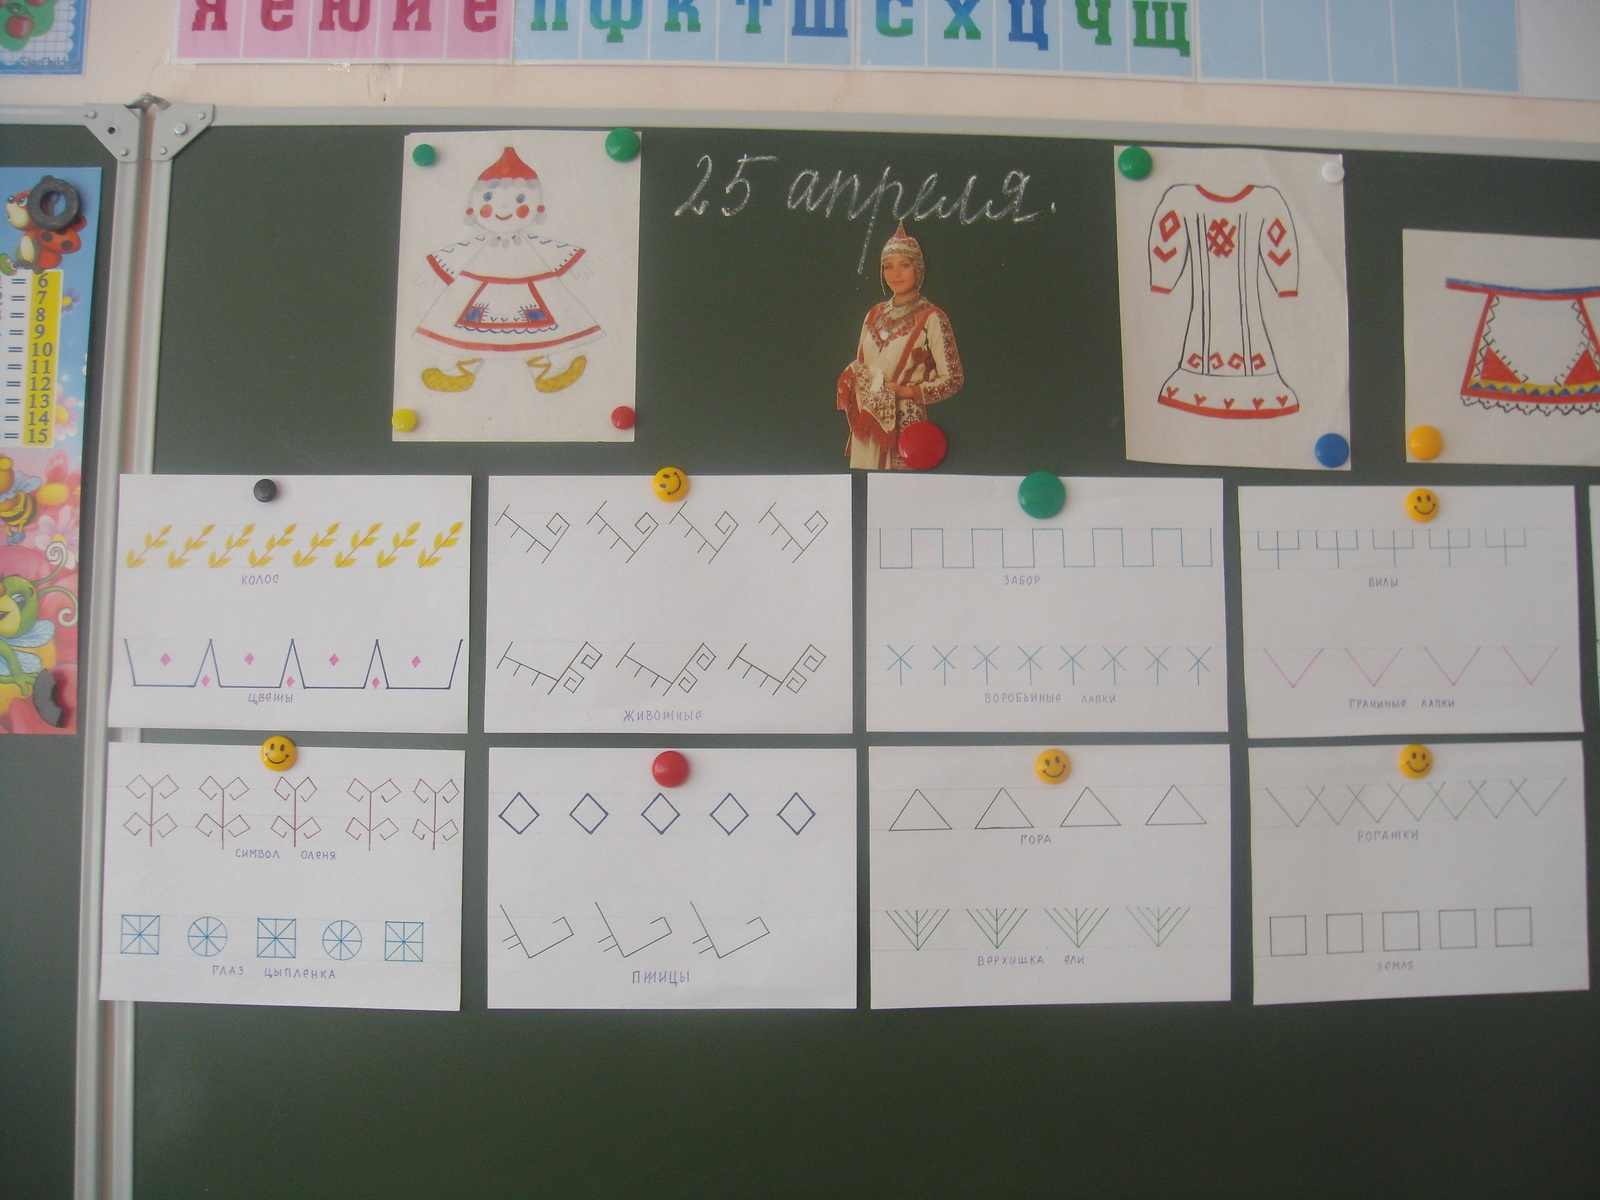 Я Е Ю И Ё П Ф К Т Ш С Х Ц Ч Щ
25 апреля.
= 6
= 7
= 8
= 9
= 10
= 11
= 12
= 13
= 14
= 15
КОЛОС
ЦВЕТЫ
ЖИВОТНЫЕ
ЗАБОР
ВОРОБЬИНЫЕ ЛАПКИ
ВИЛЫ
ГРАЧИНЫЕ ЛАПКИ
СИМВОЛ ОЛЕНЯ
ГЛАЗ ЦЫПЛЕНКА
ПТИЦЫ
ГОРА
ВЕРХУШКА ЕЛИ
РОГАТКИ
ЗЕМЛЯ